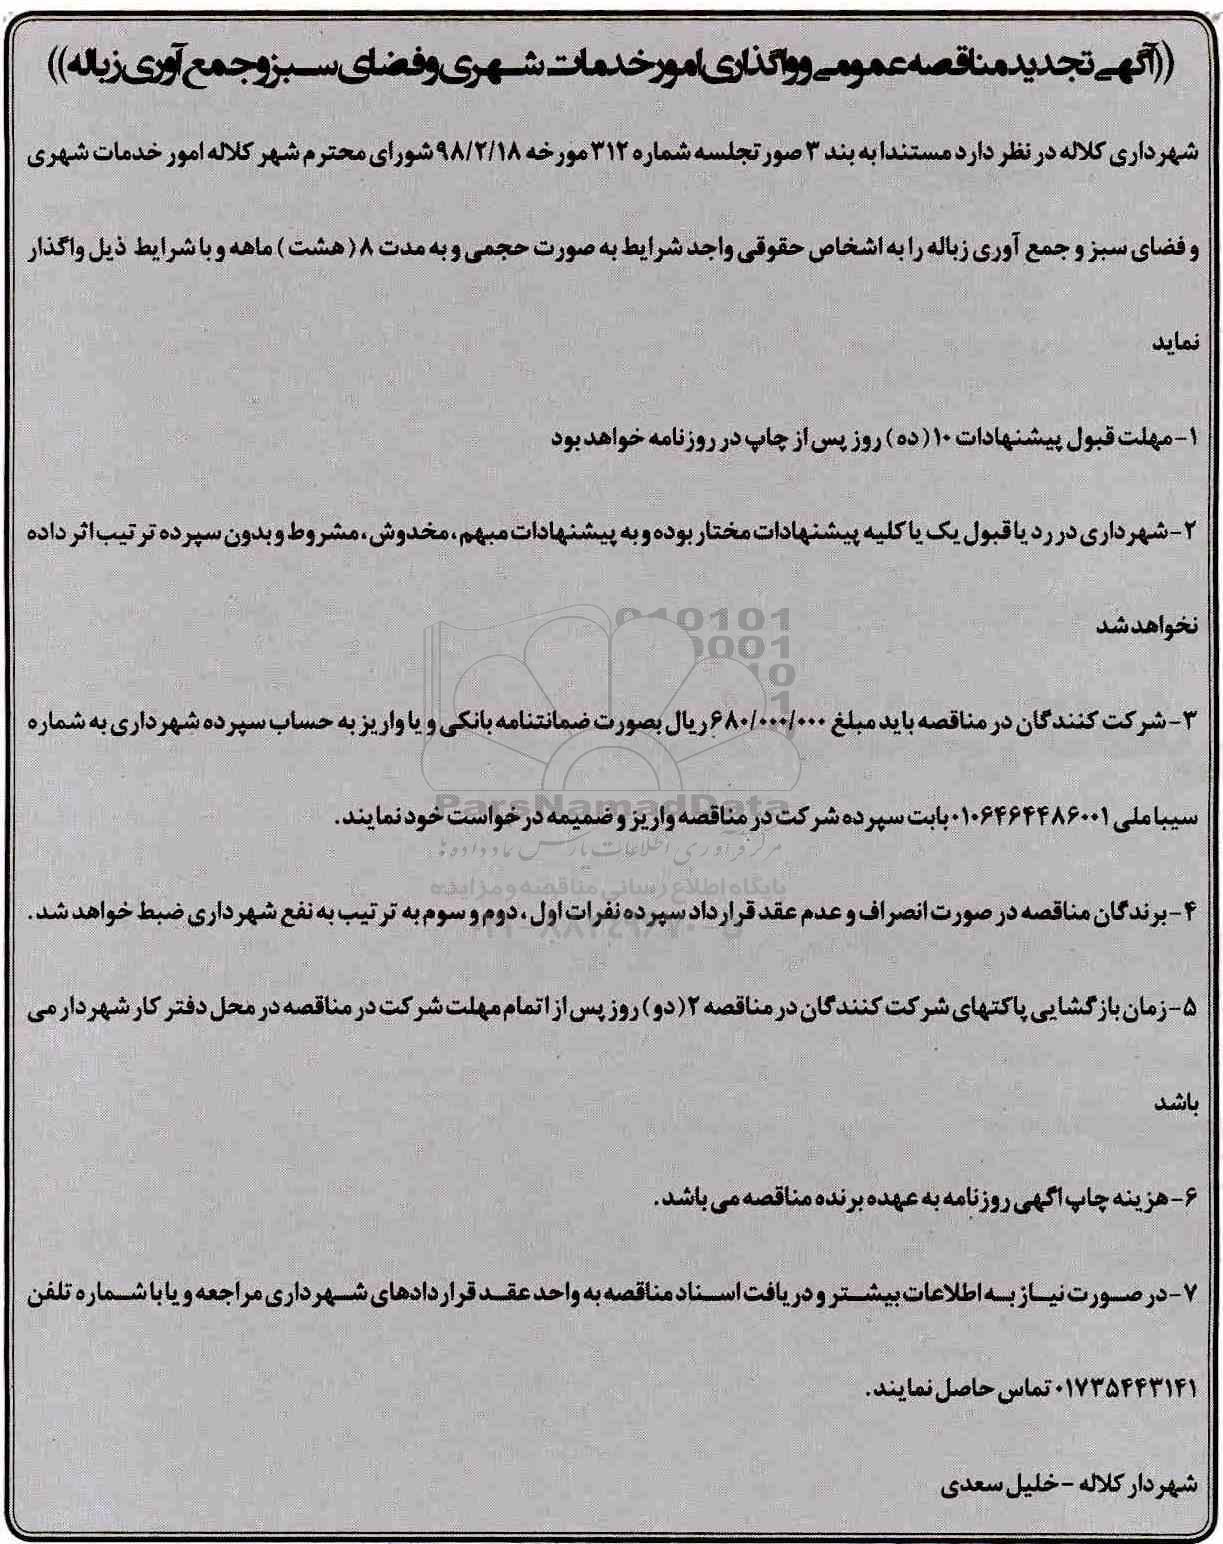 ((آگهی تجدید مناقصه عمومی و واگذاری امور خدمات شهری و فضای سبز و جمع آوری زباله))
شهرداری کلاله در نظر دارد مستندا به بند ۳ صورتجلسه شماره ۳۱۲ مورخه ۹۸/۲/۱۸ شورای محترم شهر کلاله امور خدمات شهری
و فضای سبز و جمع آوری زباله را به اشخاص حقوقی واجد شرایط به صورت حجمی و به مدت ۸ (هشت) ماهه و با شرایط ذیل واگذار
نماید
۱- مهلت قبول پیشنهادات ۱۰ (ده) روز پس از چاپ در روزنامه خواهد بود
۲- شهرداری در رد یا قبول یک یا کلیه پیشنهادات مختار بوده و به پیشنهادات مبهم، مخدوش، مشروط و بدون سپرده ترتیب اثر داده
نخواهد شد
010101
0001
10
1
۳- شرکت کنندگان در مناقصه باید مبلغ ۶۸۰/۰۰۰/۰۰۰ ریال بصورت ضمانتنامه بانکی و یا واریز به حساب سپرده شهرداری به شماره
ParsNamadData
سیبا ملی ۰۱۰۶۴۶۴۴۸۶۰۰۱ بابت سپرده شرکت در مناقصه واریز و ضمیمه درخواست خود نمایند.
مرکز فرآوری اطلاعات پارس نماد داده ها
پایگاه اطلاع رسانی مناقصه و مزایده
۴- برندگان مناقصه در صورت انصراف و عدم عقد قرارداد سپرده نفرات اول، دوم و سوم به ترتیب به نفع شهرداری ضبط خواهد شد.
۵- زمان بازگشایی پاکتهای شرکت کنندگان در مناقصه ۲ (دو) روز پس از اتمام مهلت شرکت در مناقصه در محل دفتر کار شهردار می
باشد
۶- هزینه چاپ اگهی روزنامه به عهده برنده مناقصه می باشد.
۷- در صورت نیاز به اطلاعات بیشتر و دریافت اسناد مناقصه به واحد عقد قراردادهای شهرداری مراجعه و یا با شماره تلفن
۰۱۷۳۵۴۴۳۱۴۱ تماس حاصل نمایند.
شهردار کلاله - خلیل سعدی